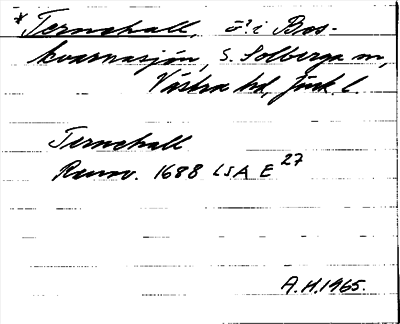 *Ternehall, ö? i Bos-
kvarnasjön, S. Solberga sn,
Västra hd, Jönk. l.
Ternehall
Rannv. 1688 LSA E 27
A.H. 1965.